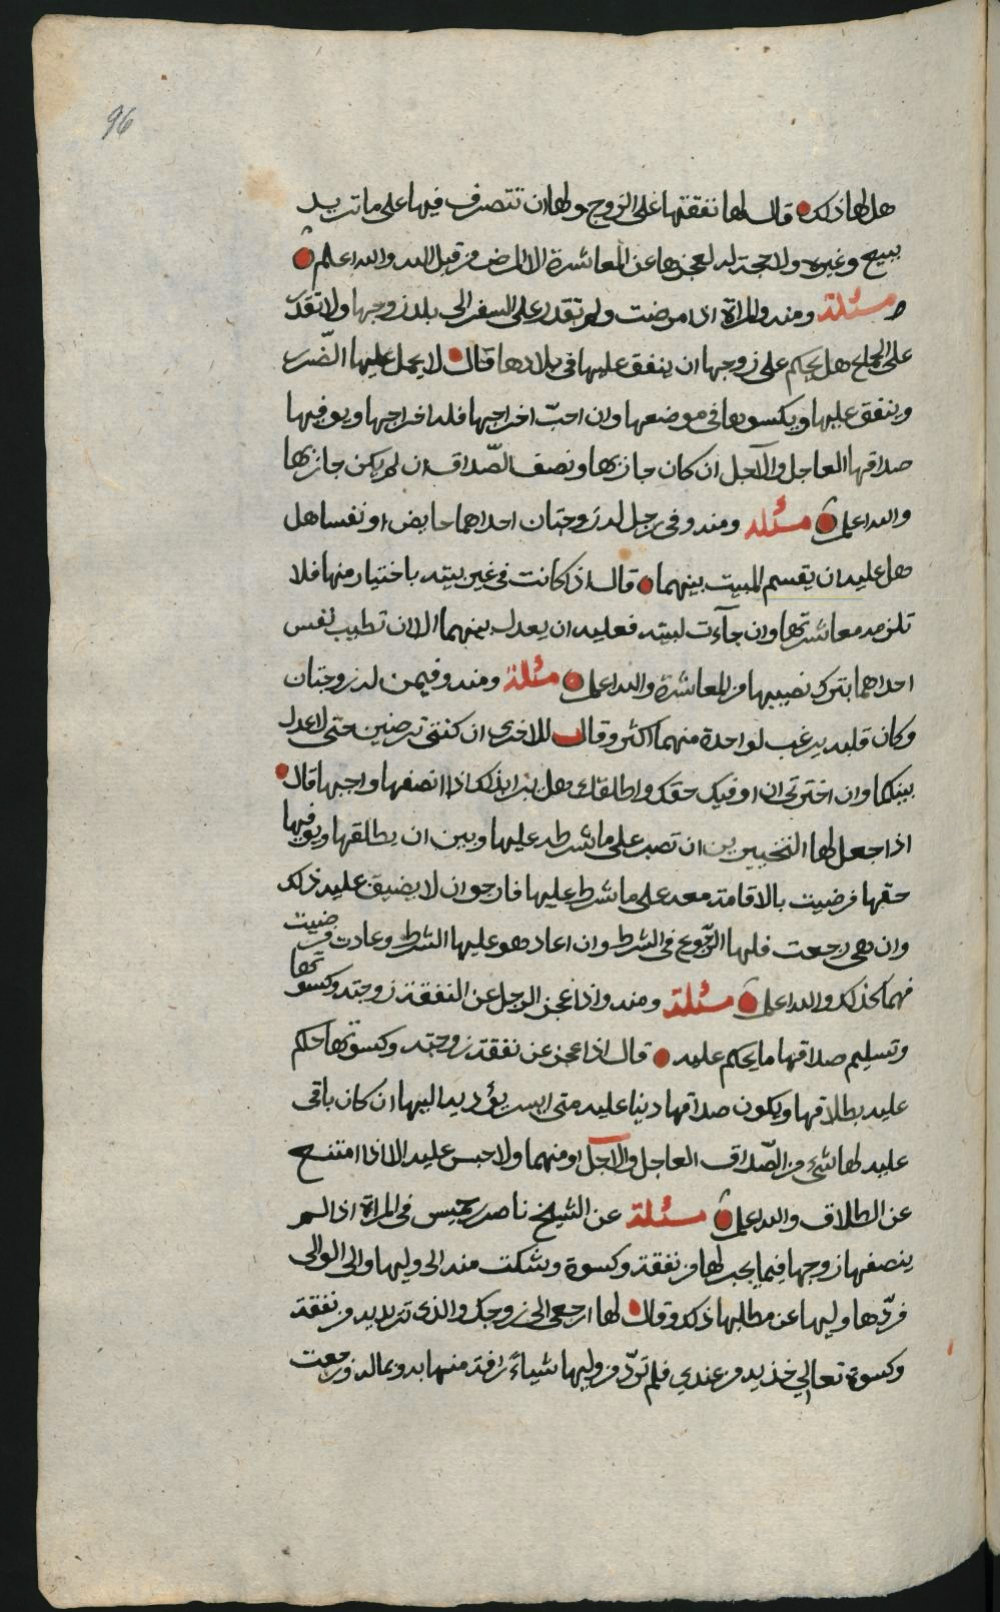 96
هل لها ذلك قال لها نفقتها على الزوج ولها ان تتصرف فيها على ما تريد
ببيع وغيره ولا حجة له لعجزها عن المعاشرة الا المرض من قبل الله والله اعلم
مسئلة ومنه والمراة اذا مرضت ولم تقدر على السفر الى بلد زوجها ولا تقدر
على الخلع هل يحكم على زوجها ان ينفق عليها في بلادها قال لا يحمل عليها الضّرر
وينفق عليها ويكسوها في موضعها وان احبّ اخراجها فله اخراجها ويوفيها
صداقها العاجل والآجل ان كان جاز بها ونصف الصّداق ان لم يكن جاز بها
والله اعلم مسئله ومنه وفي رجل له زوجتان احداهما حايض او نفسا هل
هل عليه ان يقسم المبيت بينهما قال اذا كانت في غير بيته باختيار منها فلا
تلزمه معاشرتها وان جآءت لبيته فعليه ان يعدل بينهما الا ان تطيب نفس
احداهما بترك نصيبها من المعاشرة والله اعلم مسئلة ومنه وفيمن له زوجتان
وكان قلبه يرغب لواحدة منهما اكثر وقال للاخرى ان كنتي ترضين حتى لا اعدل
بينكما وان اخترتي ان اوفيك حقك واطلقك هل يبرا بذلك اذا انصفها واجبها قال
اذا جعل لها التخيير بين ان تصبر على ما شرطه عليها وبين ان يطلقها ويوفيها
حقها فرضيت بالاقامة معه على ما شرط عليها فارجو ان لا يضيق عليه ذلك
وان هي رجعت فلها الرّجوع في الشرط وان اعاد هو عليها الشرط وعادت فرضيت
فهما كذلك والله اعلم مسئلة ومنه واذا عجز الرجل عن النفقة زوجته وكسوتها
وتسليم صداقها ما يحكم عليه قال اذا عجز عن نفقة زوجته وكسوتها حكم
عليه بطلاقها ويكون صداقها دينا عليه متى ايسر يؤديه اليها ان كان باقي
عليه لها شيء من الصّداق العاجل والآجل او منهما ولا حبس عليه الا اذا امتنع
عن الطلاق والله اعلم مسئلة عن الشيخ ناصر بن خميس في المراة اذا لم
ينصفها زوجها فيما يجب لها من نفقة وكسوة وشكت منه الى وليها والى الوالي
فردّها وليها عن مطلبها ذلك وقال لها ارجعي الى زوجك والذي تريديه من نفقة
وكسوة تعالي خذيه من عندي فلم تردّ من وليها شياءً رافة منها به وبماله ورجعت